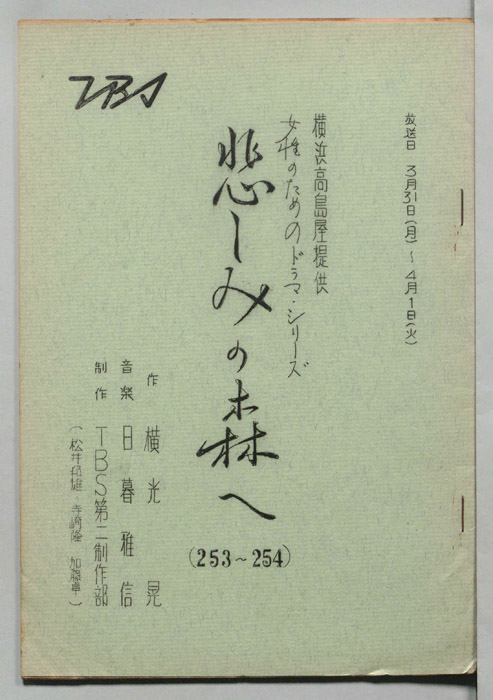 TBS
放送日 3月31日(月)~4月1日(火)
横浜高島屋提供
女性のためのドラマ・シリーズ
悲しみの森へ
(253~254)
作 横光晃
音楽 日暮雅信
制作 TBS第二制作部
(松井邦雄・寺崎隆 加藤卓)